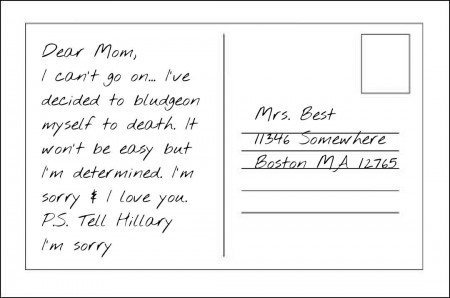 Dear Mom,
I can't go on... I've
decided to bludgeon
myself to death. It
won't be easy but
I'm determined. I'm
sorry & I love you.
P.S. Tell Hillary
I'm sorry
Mrs. Best
11346 Somewhere
Boston MA 12765